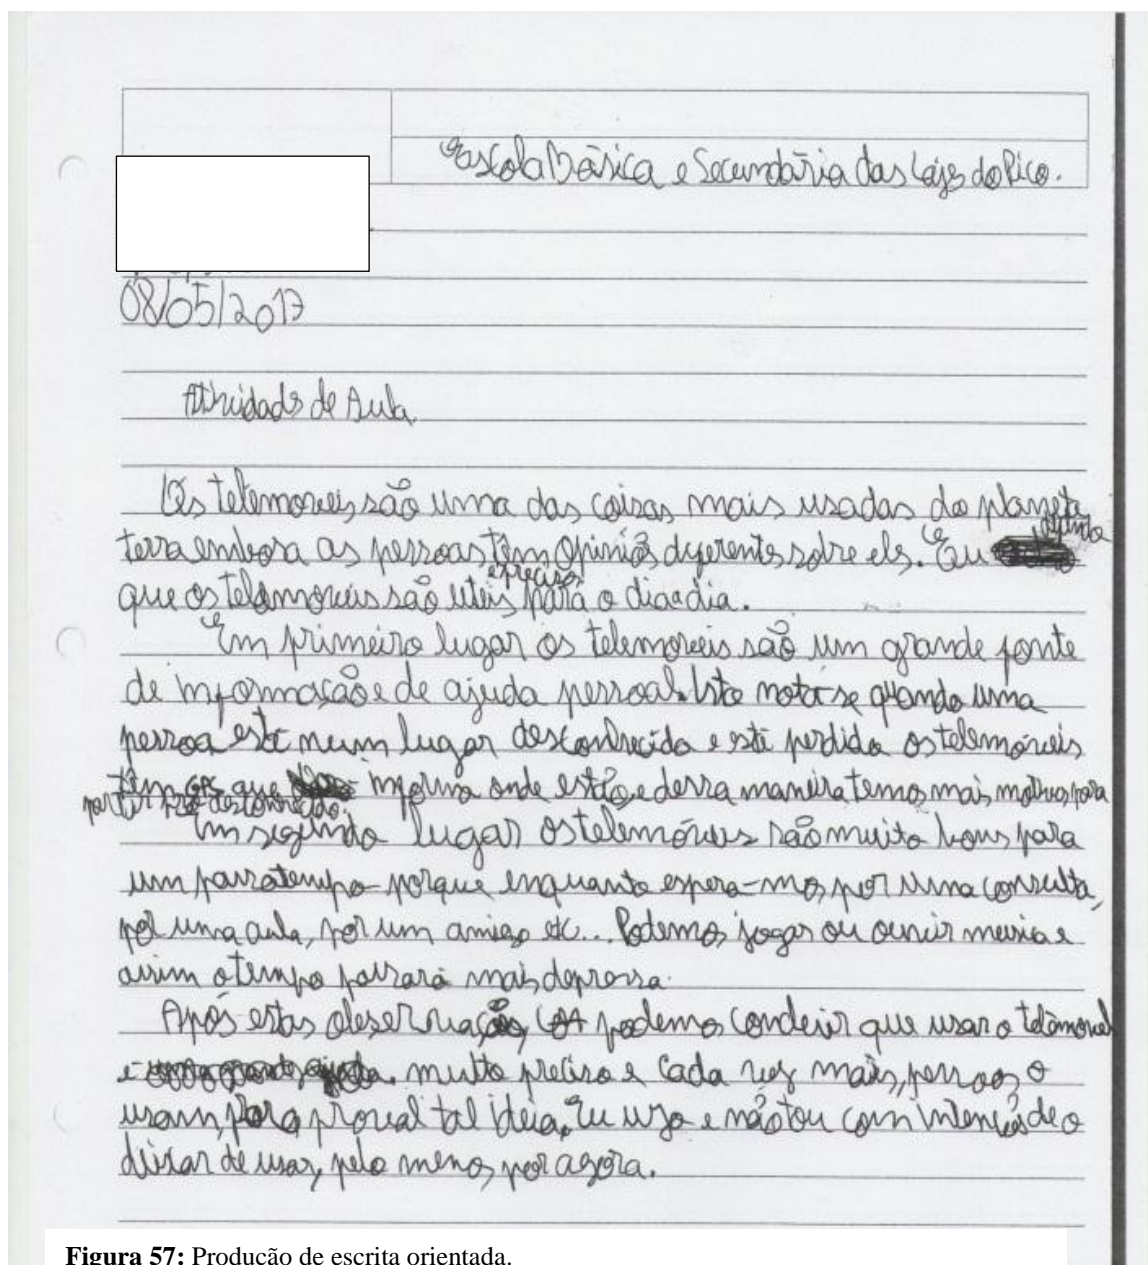 Escola Básica e Secundária das Lajes do Pico.
08/05/2017
Atividade de Aula
Os telemoveis são uma das coisas mais usadas do planeta
terra embora as pessoas têm opiniões diferentes sobre eles. Eu
que os telemoveis são uteis e preciso para o dia a dia.
Em primeiro lugar os telemoveis são um grande fonte
de informação e de ajuda pessoal. Isto nota-se quando uma
pessoa está num lugar desconhecido e está perdida os telemóveis
têm que informa onde estão, e dessa maneira temos mais motivos para
partir desconhecido.
Em segundo lugar os telemóveis são muito bons para
um passatempo porque enquanto espera-mos por uma consulta,
por uma aula, por um amigo etc... Podemos jogar ou ouvir musica e
assim o tempo passará mais depressa.
Após estas observações, podemos concluir que usar o telemovel
é muito preciso e cada vez mais, pessoas o
usam, para provar tal ideia. Eu uso e não tou com intenções de o
deixar de usar, pelo menos por agora.
Figura 57: Produção de escrita orientada.